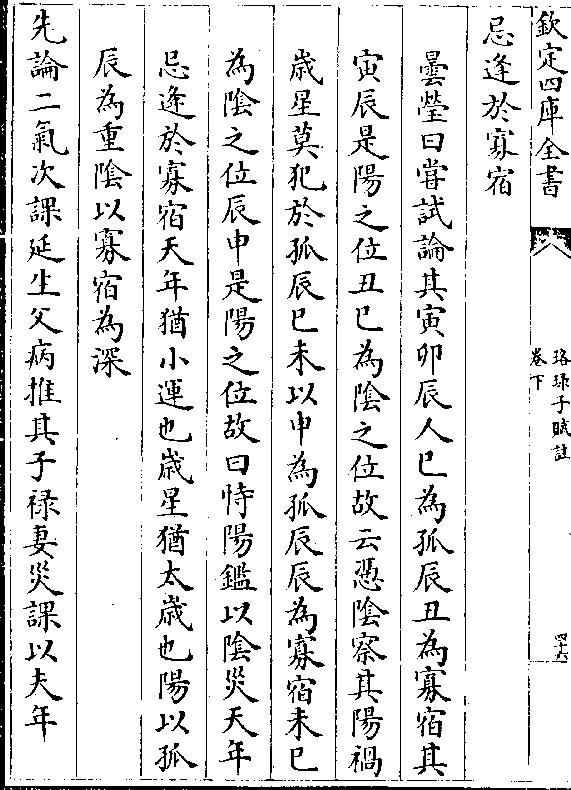 欽定四庫全書
珞琭子賦註
卷下
四十六
忌逢於寡宿
曇瑩曰嘗試論其寅卯辰人巳為孤辰丑為寡宿其
寅辰是陽之位丑巳為陰之位故云憑陰察其陽禍
歳星莫犯於孤辰巳未以申為孤辰辰為寡宿未巳
為陰之位辰申是陽之位故曰恃陽鑑以陰災天年
忌逢於寡宿天年猶小運也歳星猶太歳也陽以孤
辰為重陰以寡宿為深
先論二氣次課延生父病推其子禄妻災課以夫年